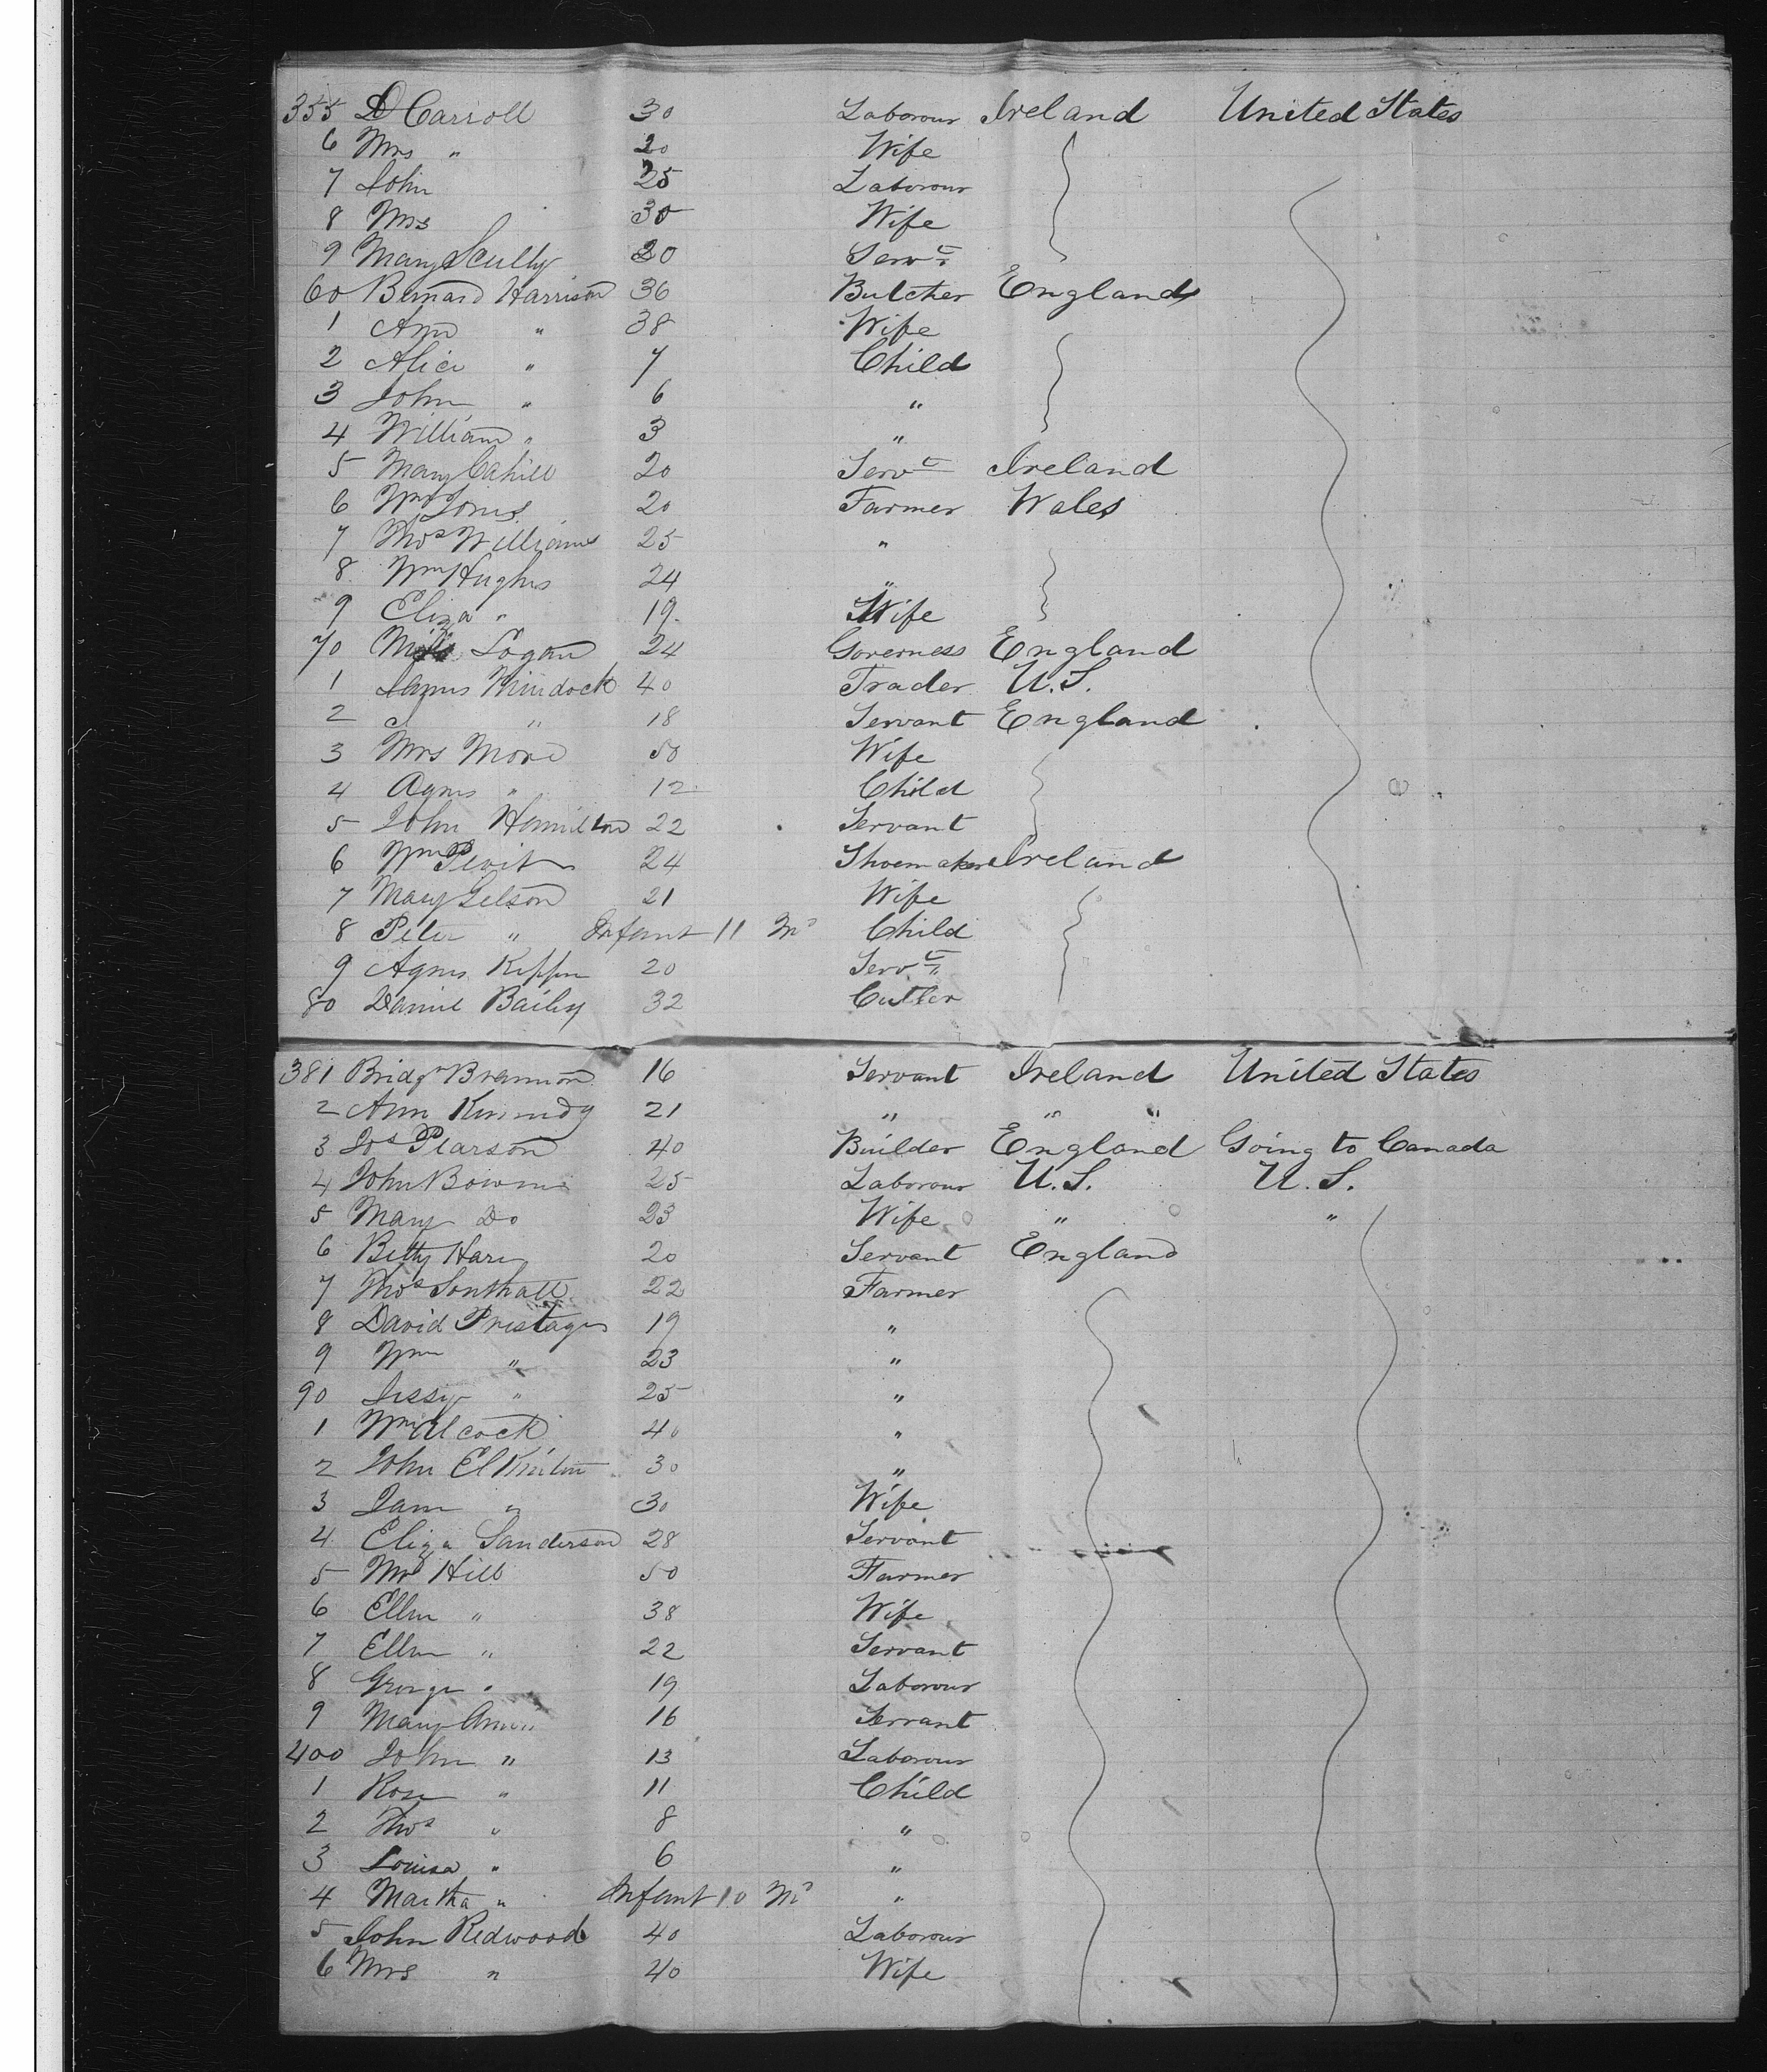 355 D Carroll 30 Laborour Ireland United States
6 Mrs " 20 Wife
7 John 25 Laborour
8 Mrs 30 Wife
9 Mary Scully 20 Servt
60 Bernard Harrison 36 Butcher England
1 Ann " 38 Wife
2 Alice " 7 Child
3 John " 6 "
4 William " 3 "
5 Mary Cahill 20 Servt Ireland
6 Wm Jones 20 Farmer Wales
7 Thos Williams 25 "
8 Wm Hughes 24 "
9 Eliza " 19 Wife
70 Miss Logan 24 Governess England
1 James Murdock 40 Trader U.S.
2 " 18 Servant England
3 Mrs More 50 Wife
4 Agnes " 12 Child
5 John Hamilton 22 Servant
6 Wm 24 Shoemaker Ireland
7 Mary Gelson 21 Wife
8 Peter " Infant 11 Ms Child
9 Agnes 20 Servt
80 Daniel Bailey 32 Cutler
381 Bridgt Brannon 16 Servant Ireland United States
2 Ann Kennedy 21 " " "
3 Jos Pearson 40 Builder England Going to Canada
4 John Bowen 25 Laborour U.S. U.S.
5 Mary Do 23 Wife " "
6 Betty Hare 20 Servant England
7 Thos Southall 22 Farmer
8 David Prestage 19 "
9 Wm " 23 "
90 Jessy " 25 "
1 Wm Alcock 40 "
2 John Elkinton 30 "
3 Jane " 30 Wife
4 Eliza Sanderson 28 Servant
5 Hill 50 Farmer
6 Ellen " 38 Wife
7 Ellen " 22 Servant
8 George " 19 Laborour
9 Mary Ann " 16 Servant
400 John " 13 Laborour
1 Rose " 11 Child
2 Thos " 8 "
3 Louisa " 6 "
4 Martha " Infant 10 Ms "
5 John Redwood 40 Laborour
6 Mrs " 40 Wife